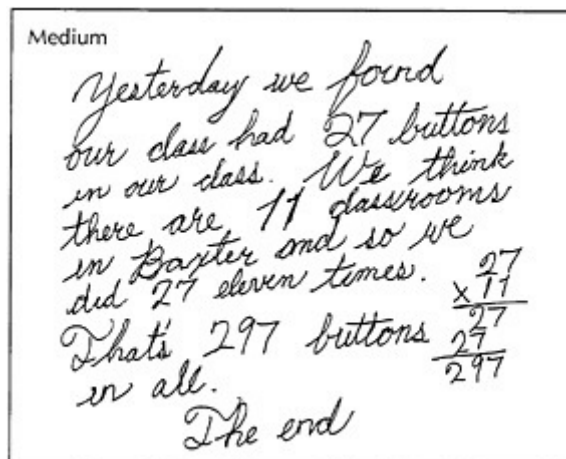 Medium
Yesterday we found
our class had 27 buttons
in our class. We think
there are 11 classrooms
in Baxter and so we
did 27 eleven times.
27
x 11
27
27
297
That's 297 buttons
in all.
The end